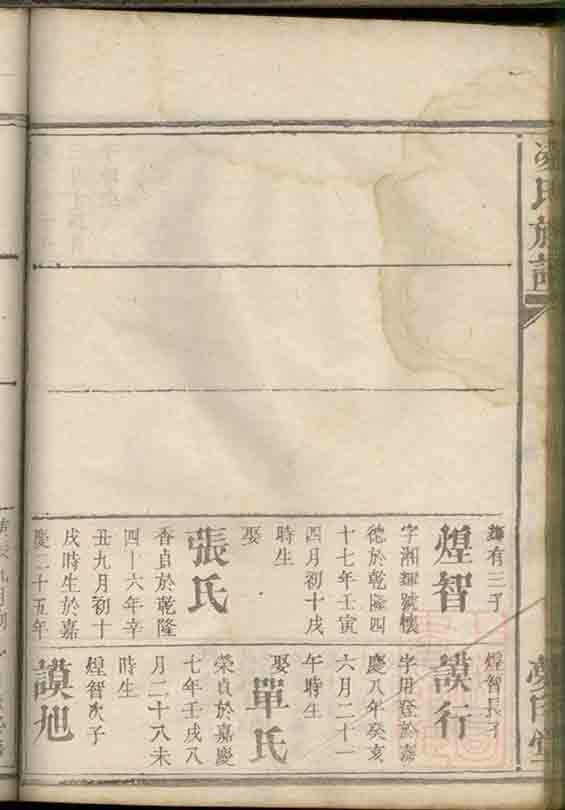 凌氏族譜
有三子
煌智
字湘輝號懷
德於乾隆四
十七年壬寅
四月初十戌
時生
娶
張氏
香貞於乾隆
四十六年辛
丑九月初十
戌時生於嘉
慶二十五年
煌智長子
謨行
字用登於嘉
慶八年癸亥
六月二十一
午時生
娶
單氏
榮貞於嘉慶
七年壬戌八
月二十八未
時生
煌智次子
謨旭
堂